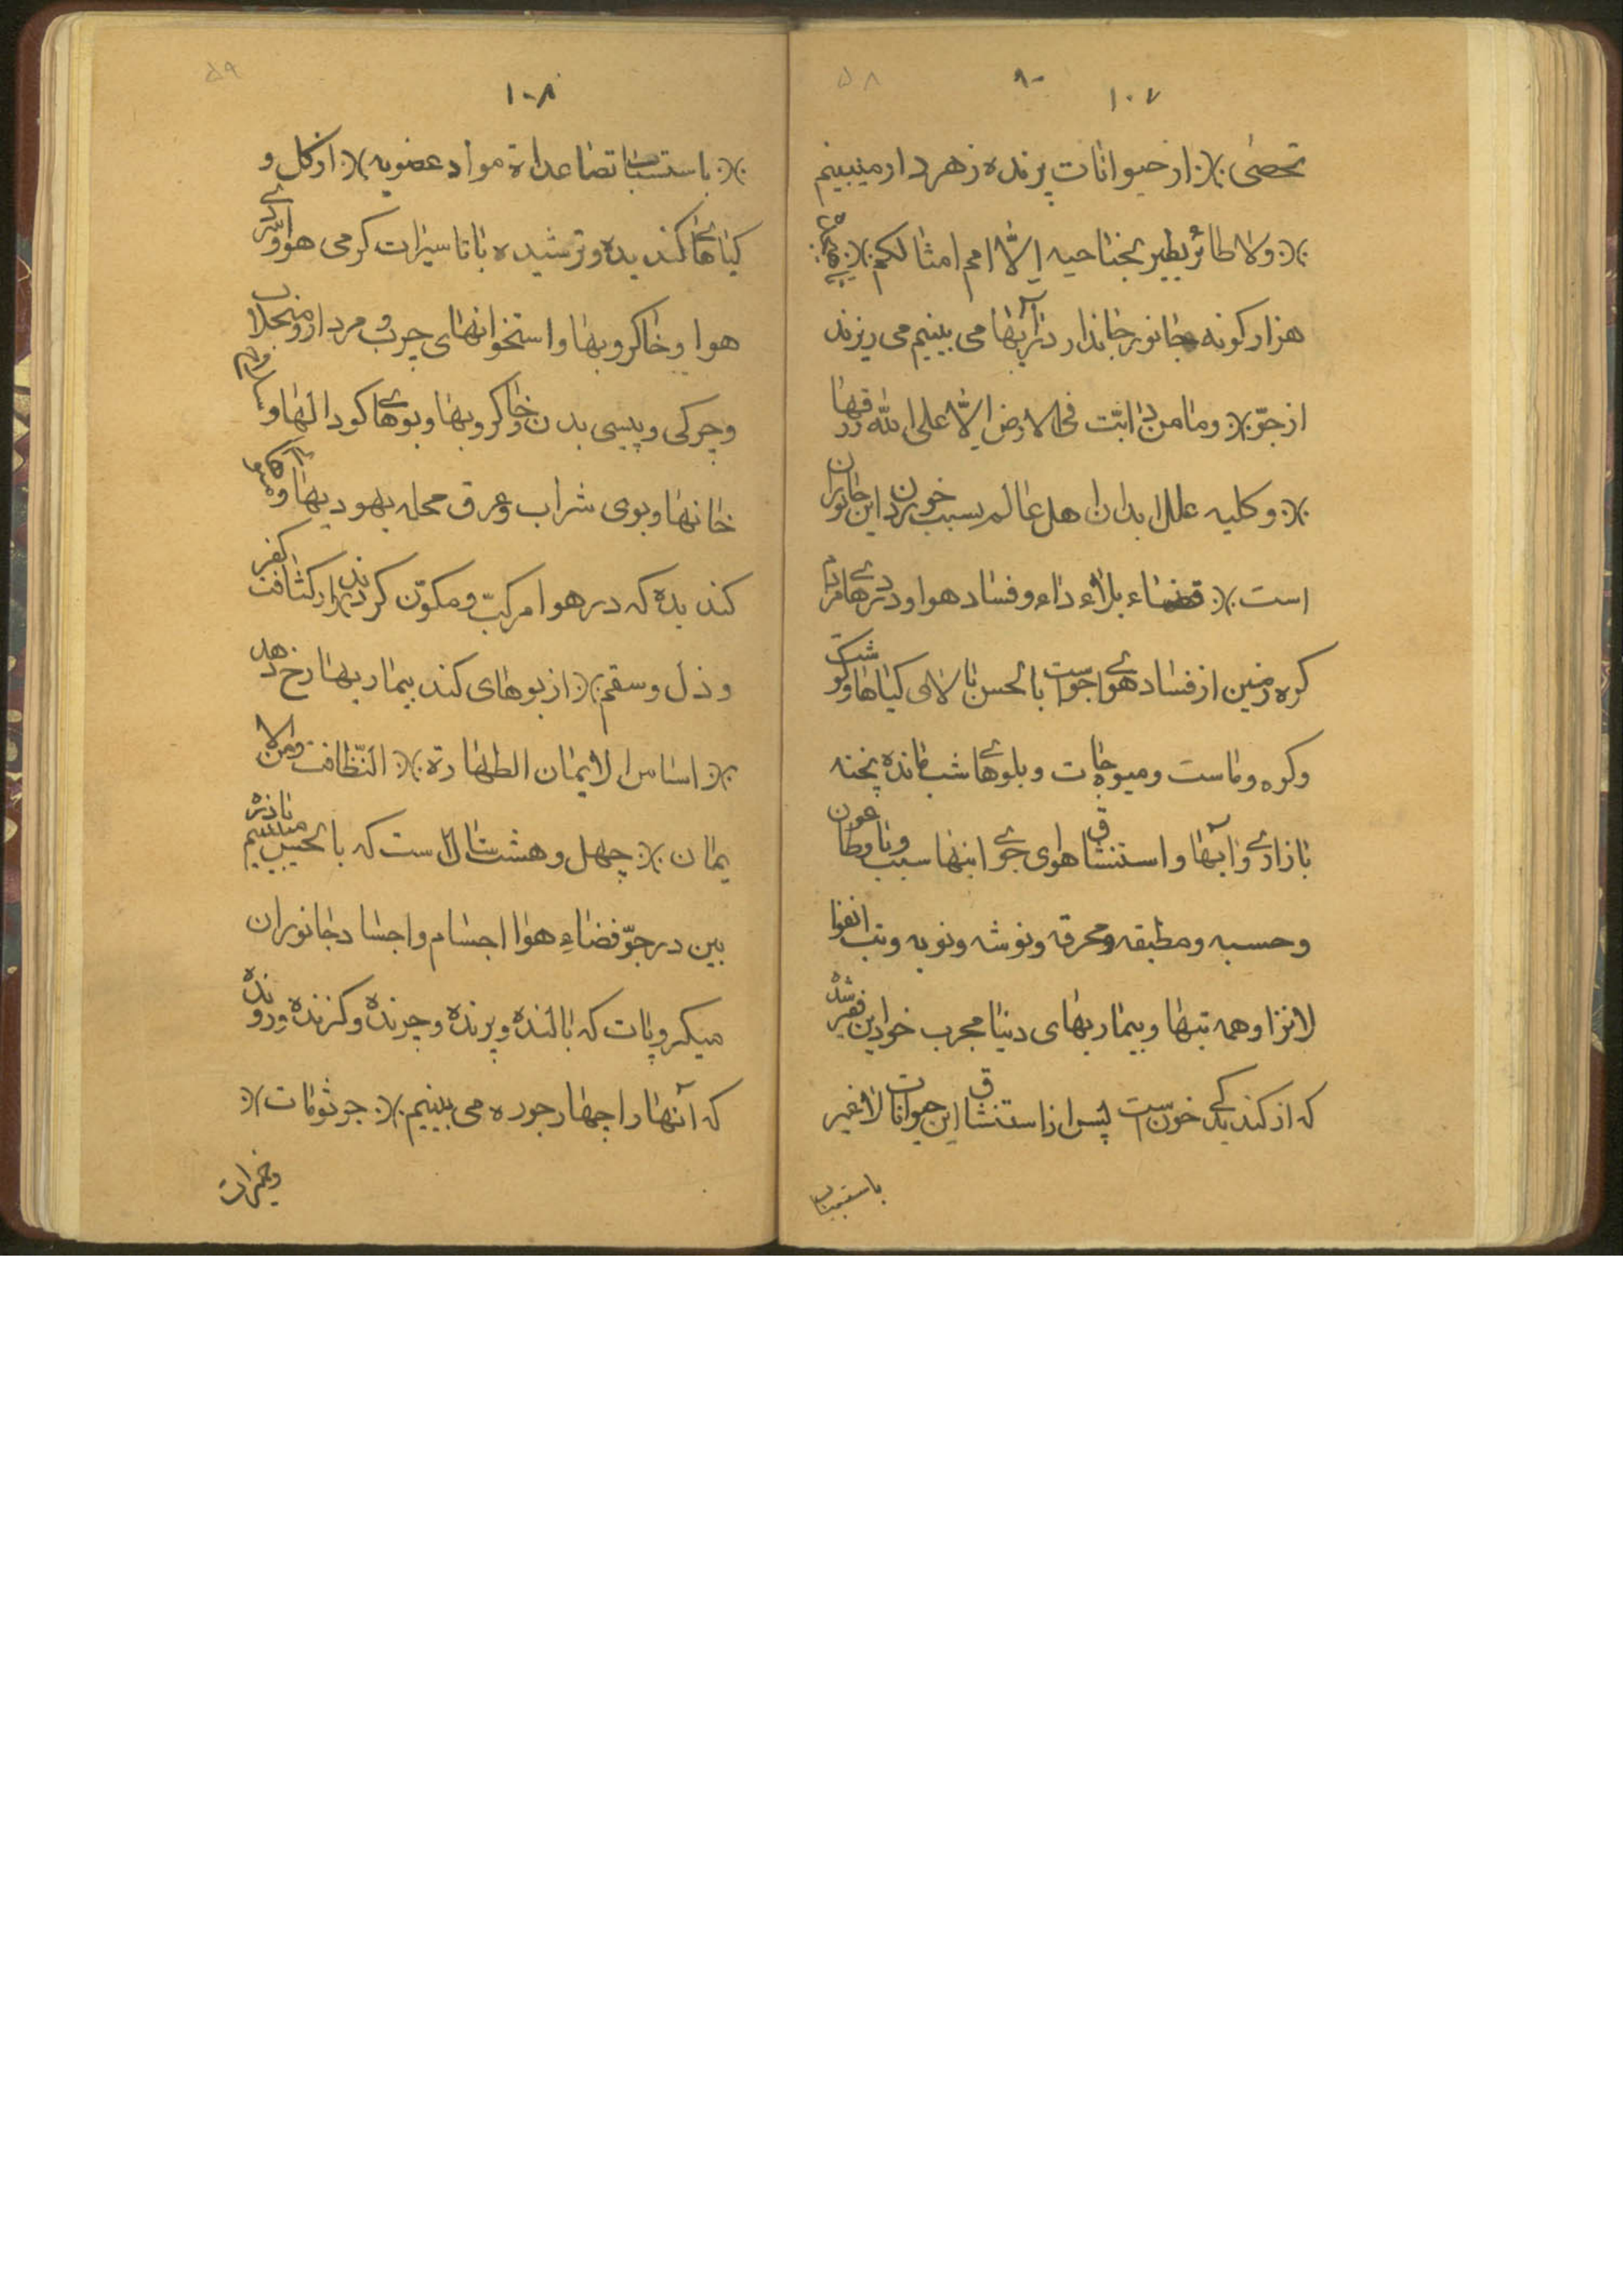 ۵۸
۸۰
۱۰۷
تحصی ※ از حیوانات پرنده زهردار میبینم
※ ولا طائر یطیر بجناحیه إلّا امم امثالکم ※
هزار کونه جانور جاندار در آبها می بینیم می ریزند
از جوّ ※ وما من دابّت فی الارض الّا علی الله رزقها
※ وکلیه علل ابدان اهل عالم بسبب خوردن این جانوران
است ※ قضاء بلاء داء وفساد هوا ودردهای مردم
کره زمین از فساد هوای جوست بالحس با لالی کیاها وکوشت
وکره وماست ومیوجات وپلوهای شب مانده پخته
بازاری وآبها واستنشاق هوای جوی اینها سبب وبا وطاعون
وحسبه ومطبقه ومحرقه ونوشه ونوبه وتب انفوا
لانزا وهمه تبها وبیماریهای دنیا مجرب خود این فقیر شده
که از کندیدکی خونست پس از استنشاق این حیوانات لا نفیر
باستسبات
۵۹
۱۰۸
※ باستسبات تصاعداة مواد عضویه ※ از کل و
کیاهای کندیده وترشیده با تاسیرات کرمی هوا وتردی
هوا وخاکروبها واستخوانهای چرب ومردار ومنجلاب
وچرکی وپیسی بدن وخاکروبها وبوهای کودالها و
خانها وبوی شراب وعرق محله یهودیها و
کندیده که در هوا مرکبّ ومکوّن کردند ※ از کثافت کفر
وذل وسقم ※ از بوهای کند بیماریها رخ دهد
※ اساس الایمان الطهارة ※ النّظافت ومن الا
یمان ※ چهل وهشت سال است که با
بین در جوّ فضاء هوا اجسام واجساد جانوران
میکروپات که بالنده وپرنده وچرنده وکزنده ورونده
که آنها را چهار جوره می بینیم ※ جرثومات ※
وخمیرات